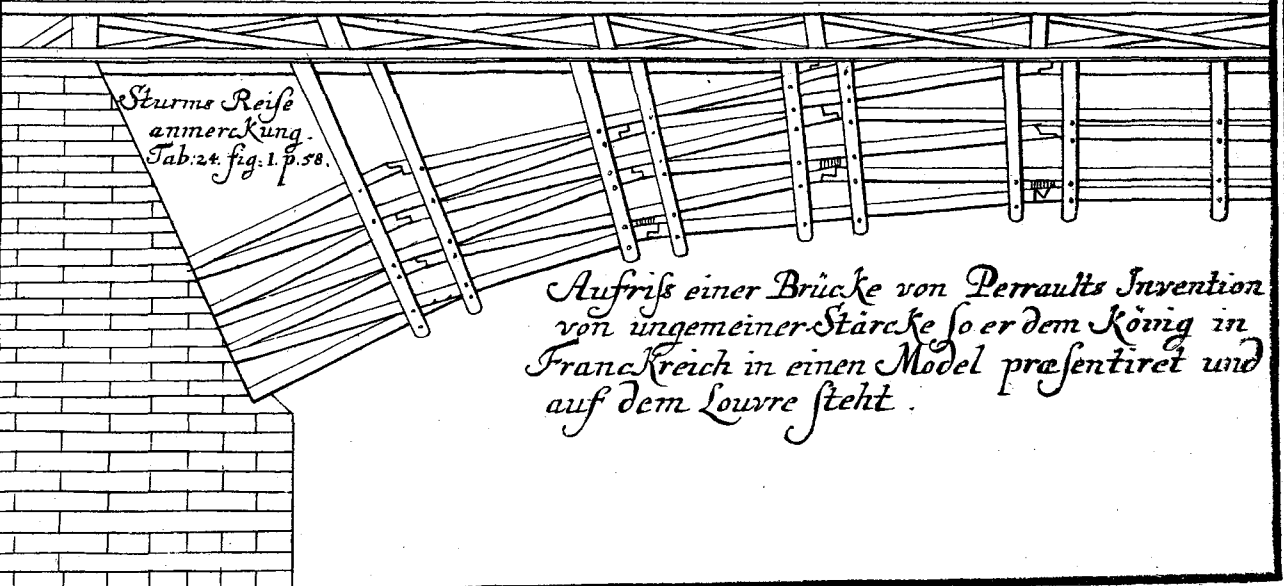 Sturms Reiſe
anmerckung.
Tab: 24. fig: 1. p. 58.
Aufriſs einer Brücke von Perraults Invention
von ungemeiner Stärcke ſo er dem König in
Franckreich in einen Model præſentiret und
auf dem Louvre ſteht.